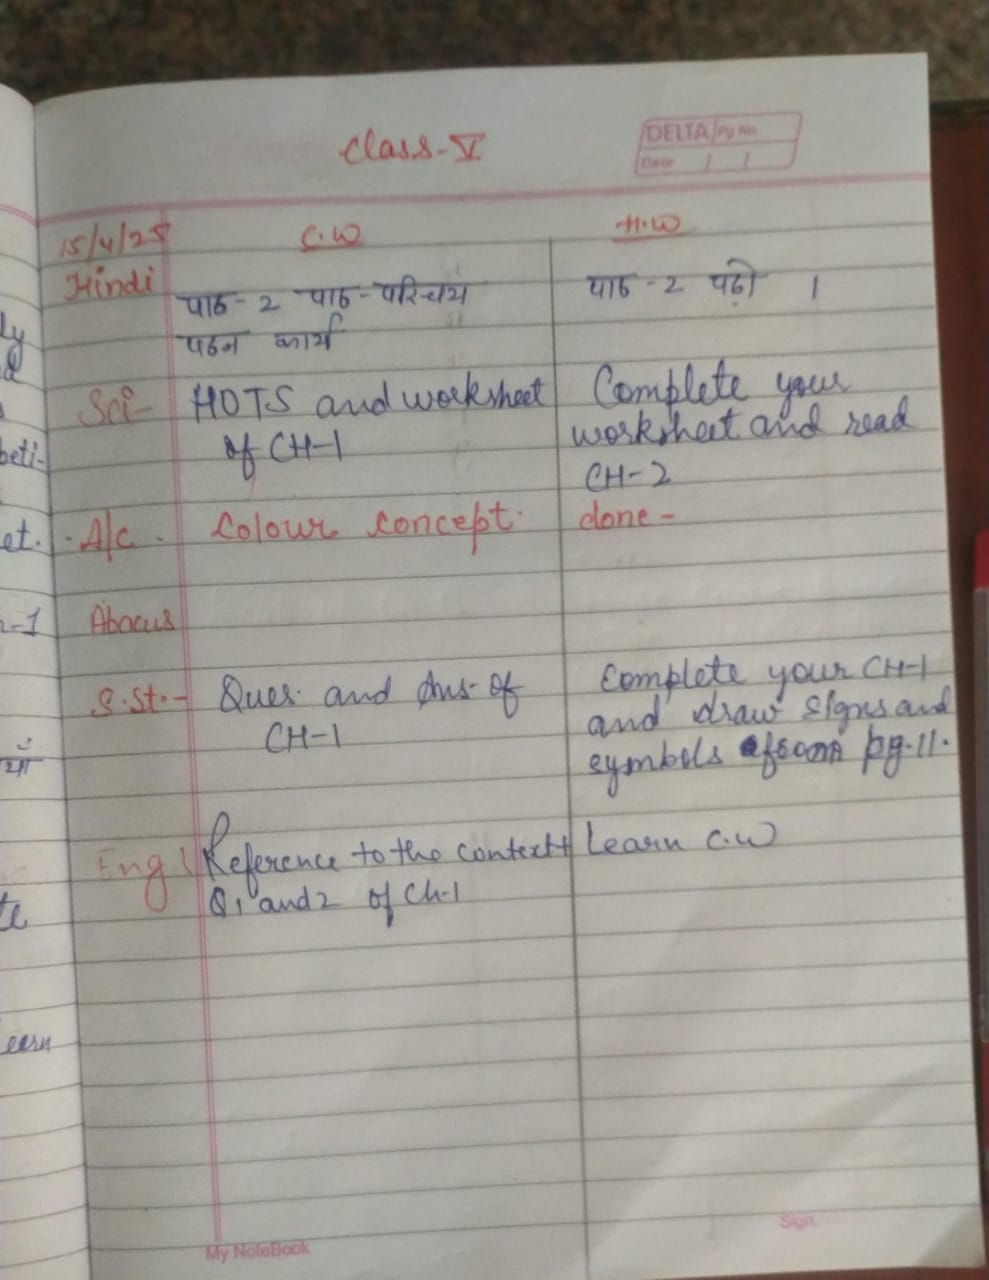 Class-V
DELTA Pg No.
Date / /
15/4/25 C.W H.W
Hindi
पाठ - 2 पाठ - परिचय पाठ - 2 पढ़ो ।
पठन कार्य
Sci- HOTS and worksheet Complete your
of CH-1 worksheet and read
CH-2
A/c. Colour concept. done -
Abacus
S.St.- Ques. and Ans. of Complete your CH-1
CH-1 and draw signs and
symbols from pg.11.
Eng Reference to the context Learn C.W
Q1 and 2 of Ch-1
ly
beti-
et.
-1
te
earn
My NoteBook
Sign.